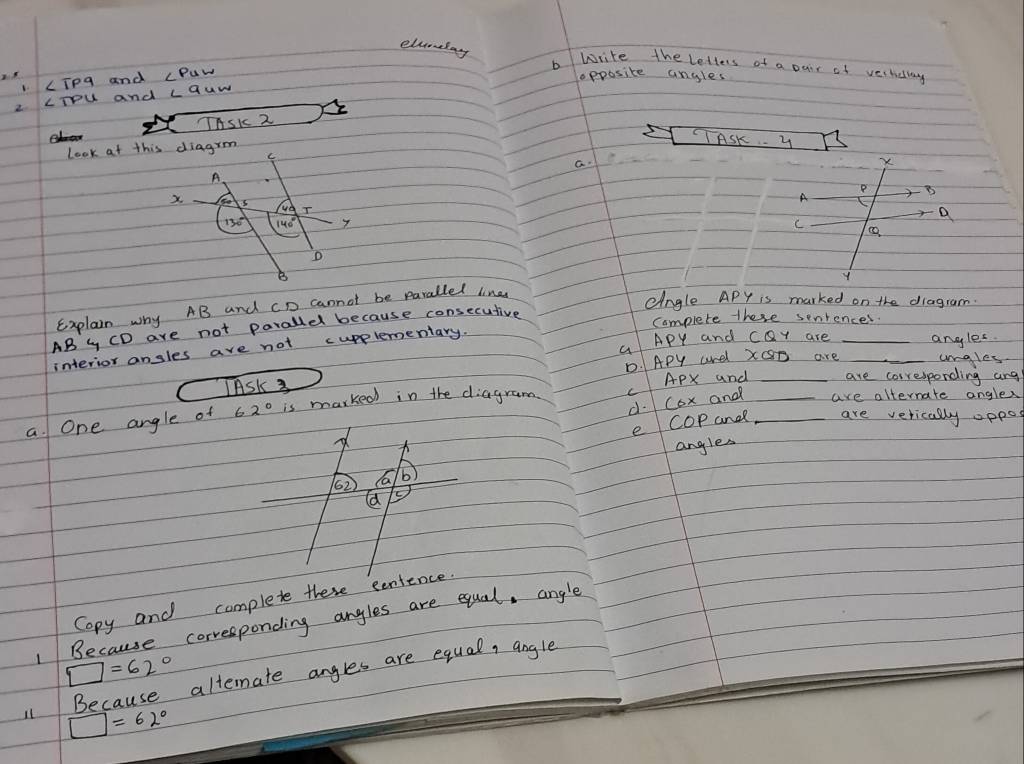 1. ∠TPq and ∠PUW
2. ∠TPU and ∠quw
TASK 2
Look at this diagrm
A
C
x
S
T
y
130°
40
140°
D
B
Explain why AB and CD cannot be parallel lines
AB & CD are not parallel because consecutive
interior angles are not supplementary.
TASK 3
a. One angle of 62° is marked in the diagram.
62
a
b
d
c
Copy and complete these sentence.
I Because corresponding angles are equal, angle
= 62°
II Because alternate angles are equal, angle
= 62°
b Write the Letters of a pair of vertically
opposite angles
TASK .. 4
a.
X
A
P
B
C
Q
D
Y
Angle APY is marked on the diagram.
Complete these sentences.
a APY and CQY are ____ angles.
b. APY and XQD are ____ angles.
c APX and ____ are corresponding ang
d. CQX and ____ are alternate angles
e CQP and ____ are vetically oppos
angles